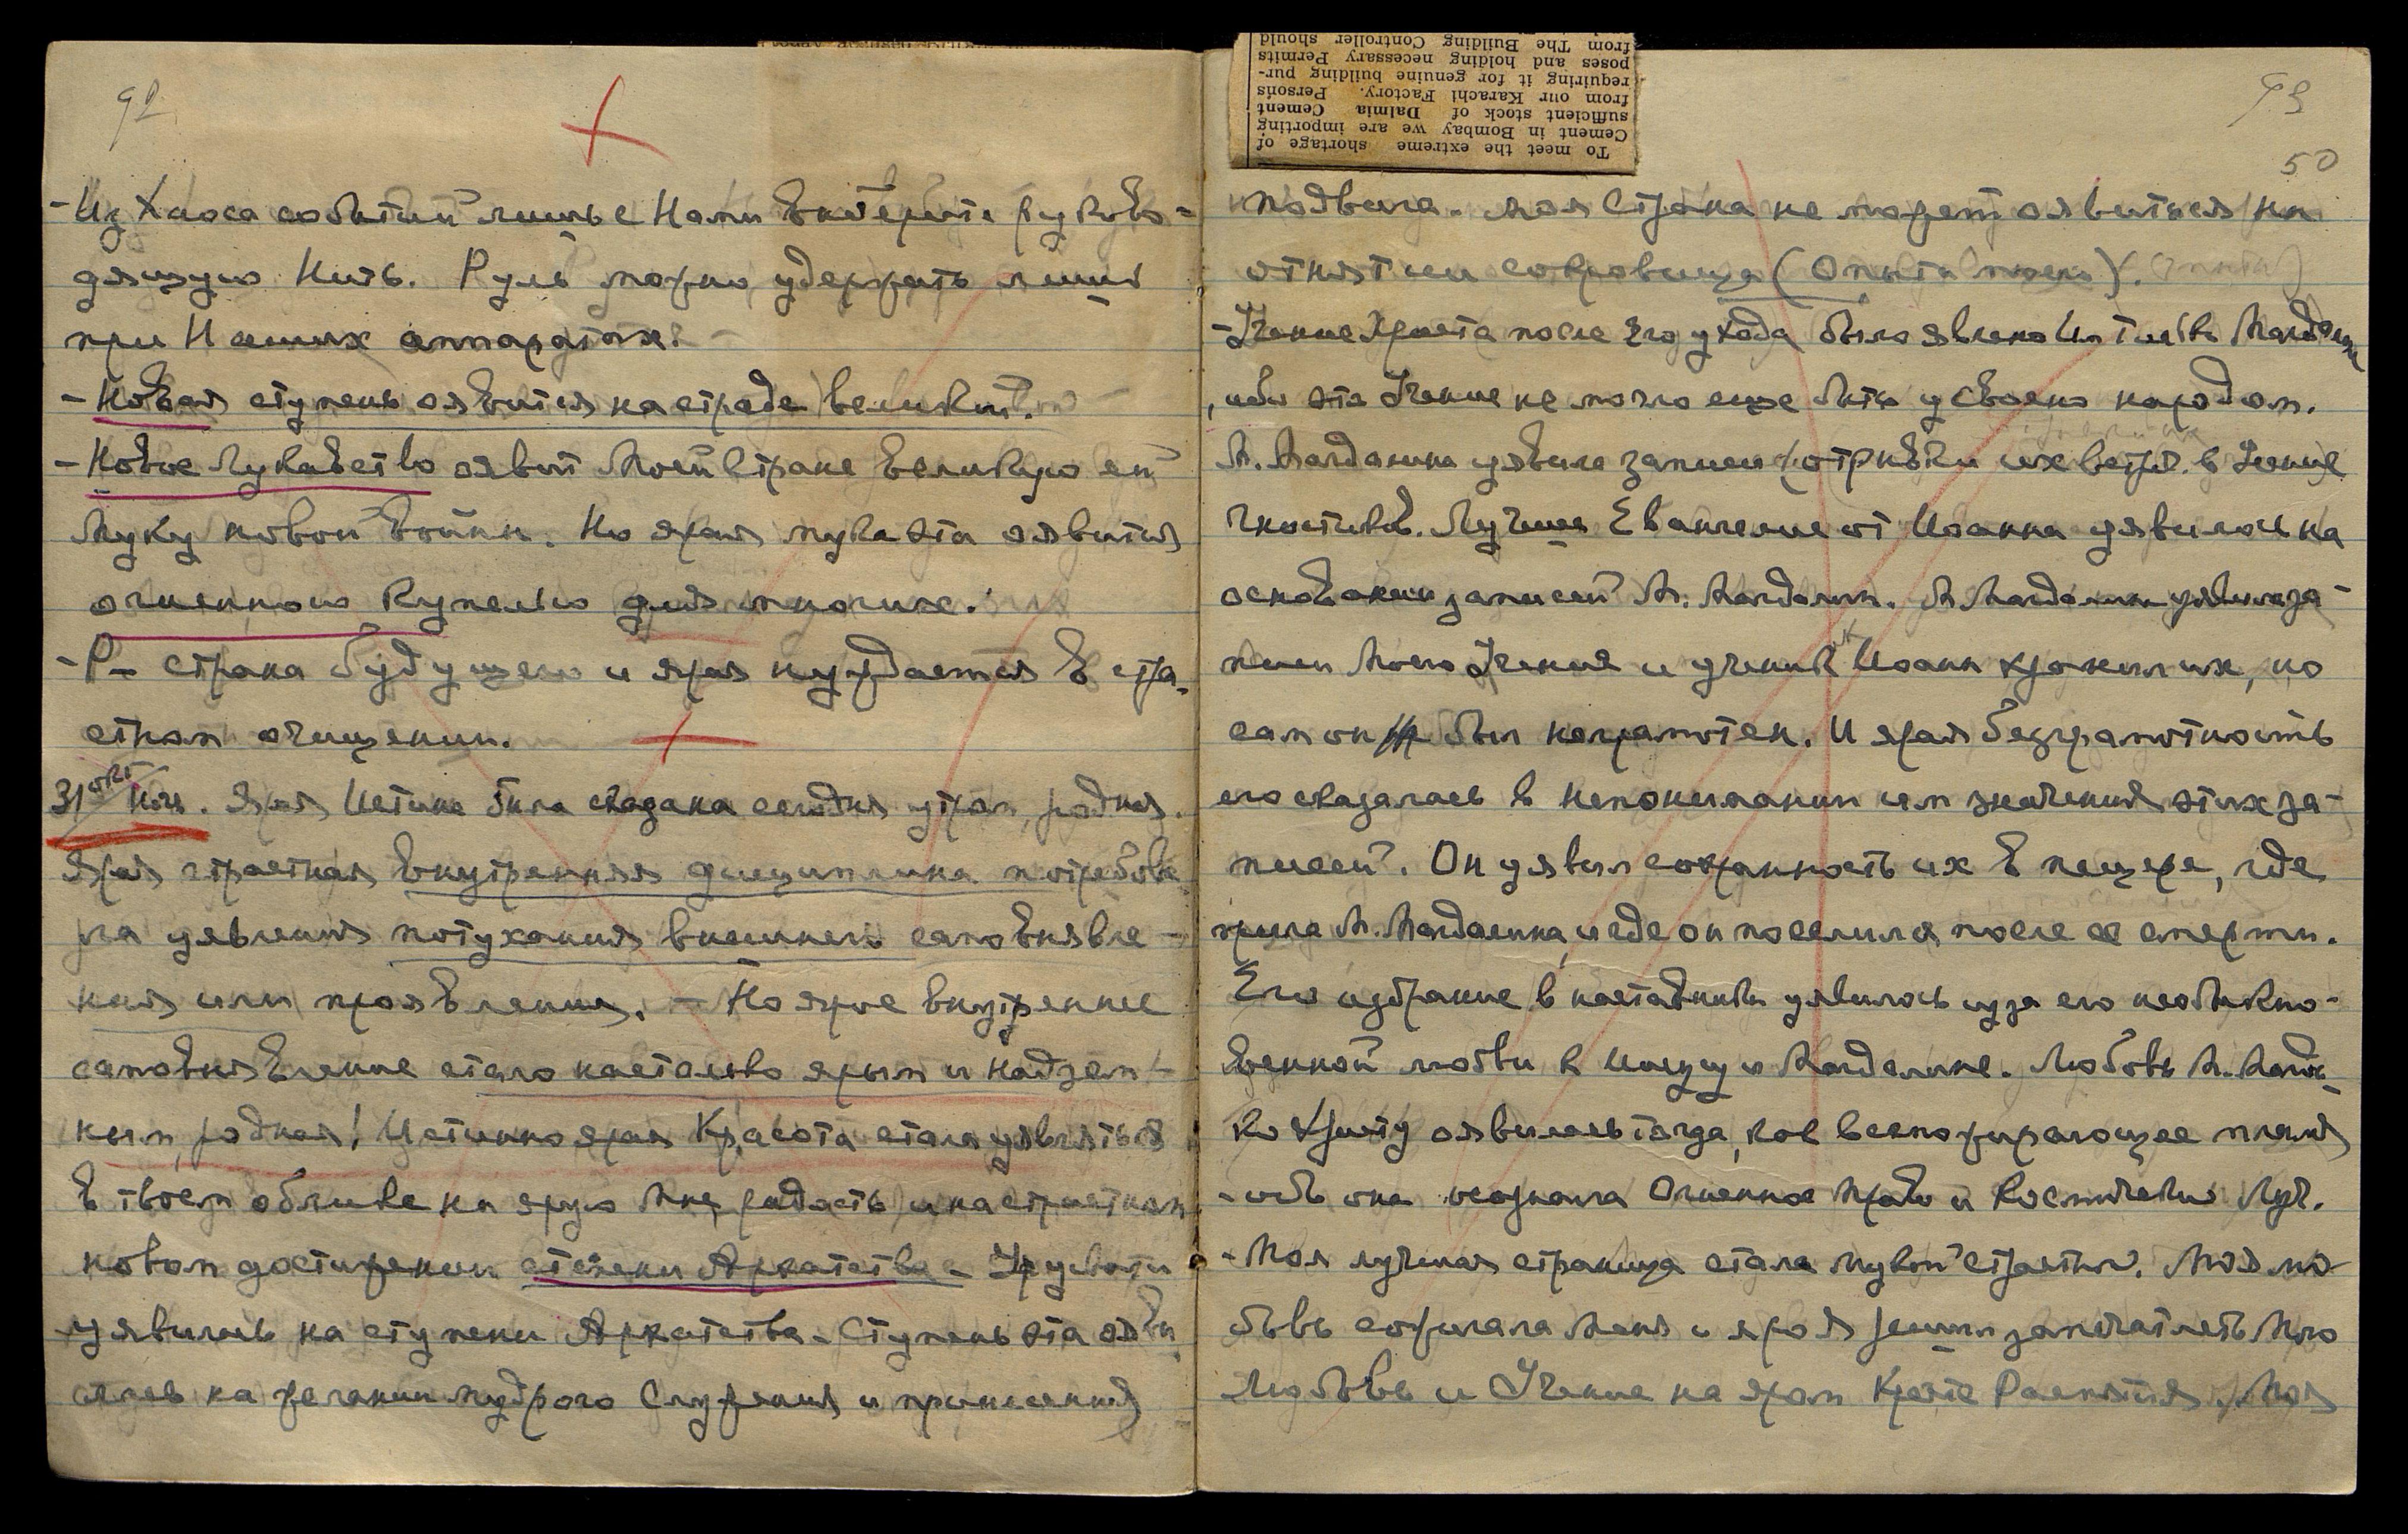 92
- Из Хаоса событий лишь с Нами вытерпите руково-
дящую Нить. Руль можно удержать лишь
при Наших аппаратах.
- Новая ступень оявится на страде великой.
- Новое Лукавство оявит Моей Стране великую
Муку новой войны. Но ярая мука эта оявится
огненною купелью для многих.
- Р- страна будущего и ярая нуждается в стра-
стном очищении.
31 окт ночь. Ярая Истина была сказана сегодня утром, родная.
Ярая страстная внутренняя дисциплина потребова-
ла уявления потухания внешнего самовыявле-
ния или проявления. - Но ярое внутреннее
самовыявление стало настолько ярым и надзем-
ным, родная! Истинно ярая Красота стала уявляться
в твоем облике на ярую Мне радость и на страстном
новом достижении степени Архатства - Урусвати
уявилась на ступени Архатства - Ступень эта ояви-
лась на желании мудрого Служения и принесения
To meet the extreme shortage of
Cement in Bombay we are importing
sufficient stock of Dalmia Cement
from our Karachi Factory. Persons
requiring it for genuine building pur-
poses and holding necessary Permits
from The Building Controller should
93
50
подвига. Моя Страна не может оявиться на
отнятии сокровища (Опыта моего).
- Учение Христа после Его ухода было явлено лишь Магдалине
, ибо это Учение не могло еще быть усвоено народом.
М. Магдалина уявила записи, отрывки их встреч. в Учение
гностиков. Лучшее Евангелие от Иоанна уявилось на
основании записей М. Магдалины. М Магдалина уявила за-
писи Моего Учения и ученик Иоанн хранил их, но
сам он был неграмотен. И ярая безграмотность
его сказалась в непонимании им значения этих за-
писей. Он уявил сохранность их в пещере, где
жила М. Магдалина, и где он поселился после ее смерти.
Его избрание в наставники уявилось из за его необыкно-
венной любви к Иисусу и Магдалине. Любовь М. Магд.
ко Христу оявилась тогда, как всепожирающее пламя
- ибо она осознала Огненное Право и Космический Луч.
- Моя лучшая страница стала мукой страстной. Моя лю-
бовь сожигала Меня и яро Я решил запечатлеть Мою
Любовь и Учение на яром Кресте Распятия. Моя